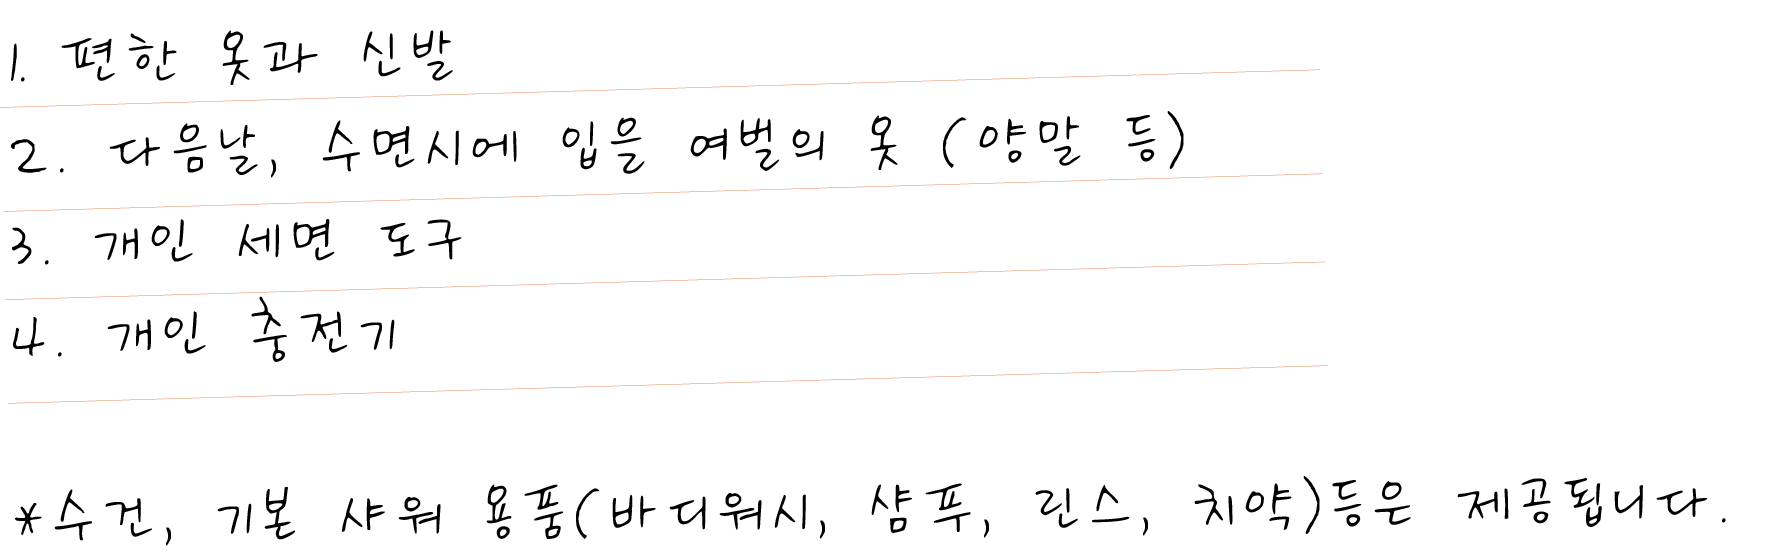 1. 편한 옷과 신발
2. 다음날, 수면시에 입을 여벌의 옷 (양말 등)
3. 개인 세면 도구
4. 개인 충전기
*수건, 기본 샤워 용품(바디워시, 샴푸, 린스, 치약)등은 제공됩니다.